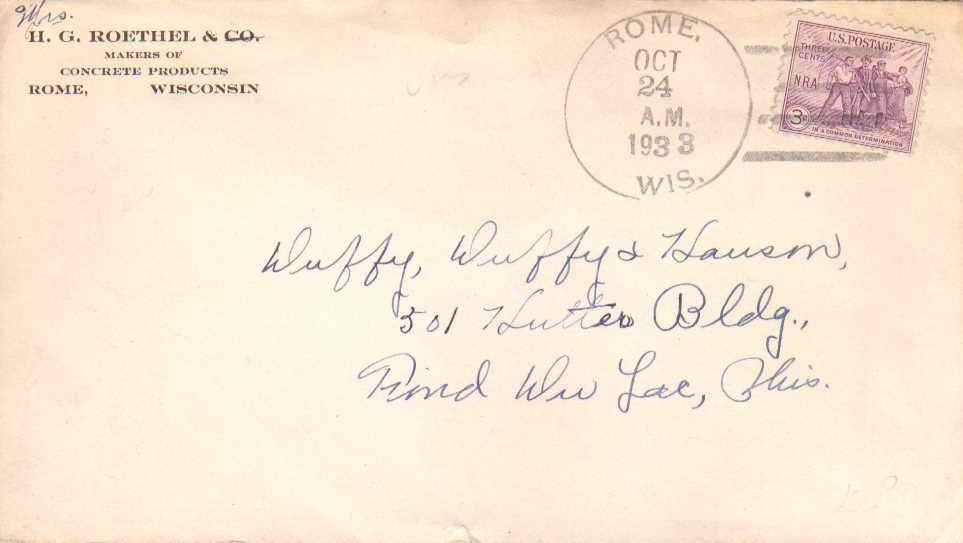 Mrs.
H. G. ROETHEL & CO.
MAKERS OF
CONCRETE PRODUCTS
ROME, WISCONSIN
ROME,
OCT
24
A.M.
1933
WIS.
U.S. POSTAGE
THREE
CENTS
NRA
3¢
IN A COMMON DETERMINATION
Duffy, Duffy & Hanson,
501 Hutter Bldg.,
Fond Du Lac, Wis.